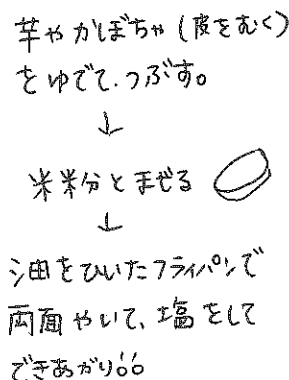 芋やかぼちゃ(皮をむく)
をゆでて、つぶす。
↓
米粉とまぜる
↓
油をひいたフライパンで
両面やいて、塩をして
できあがり。